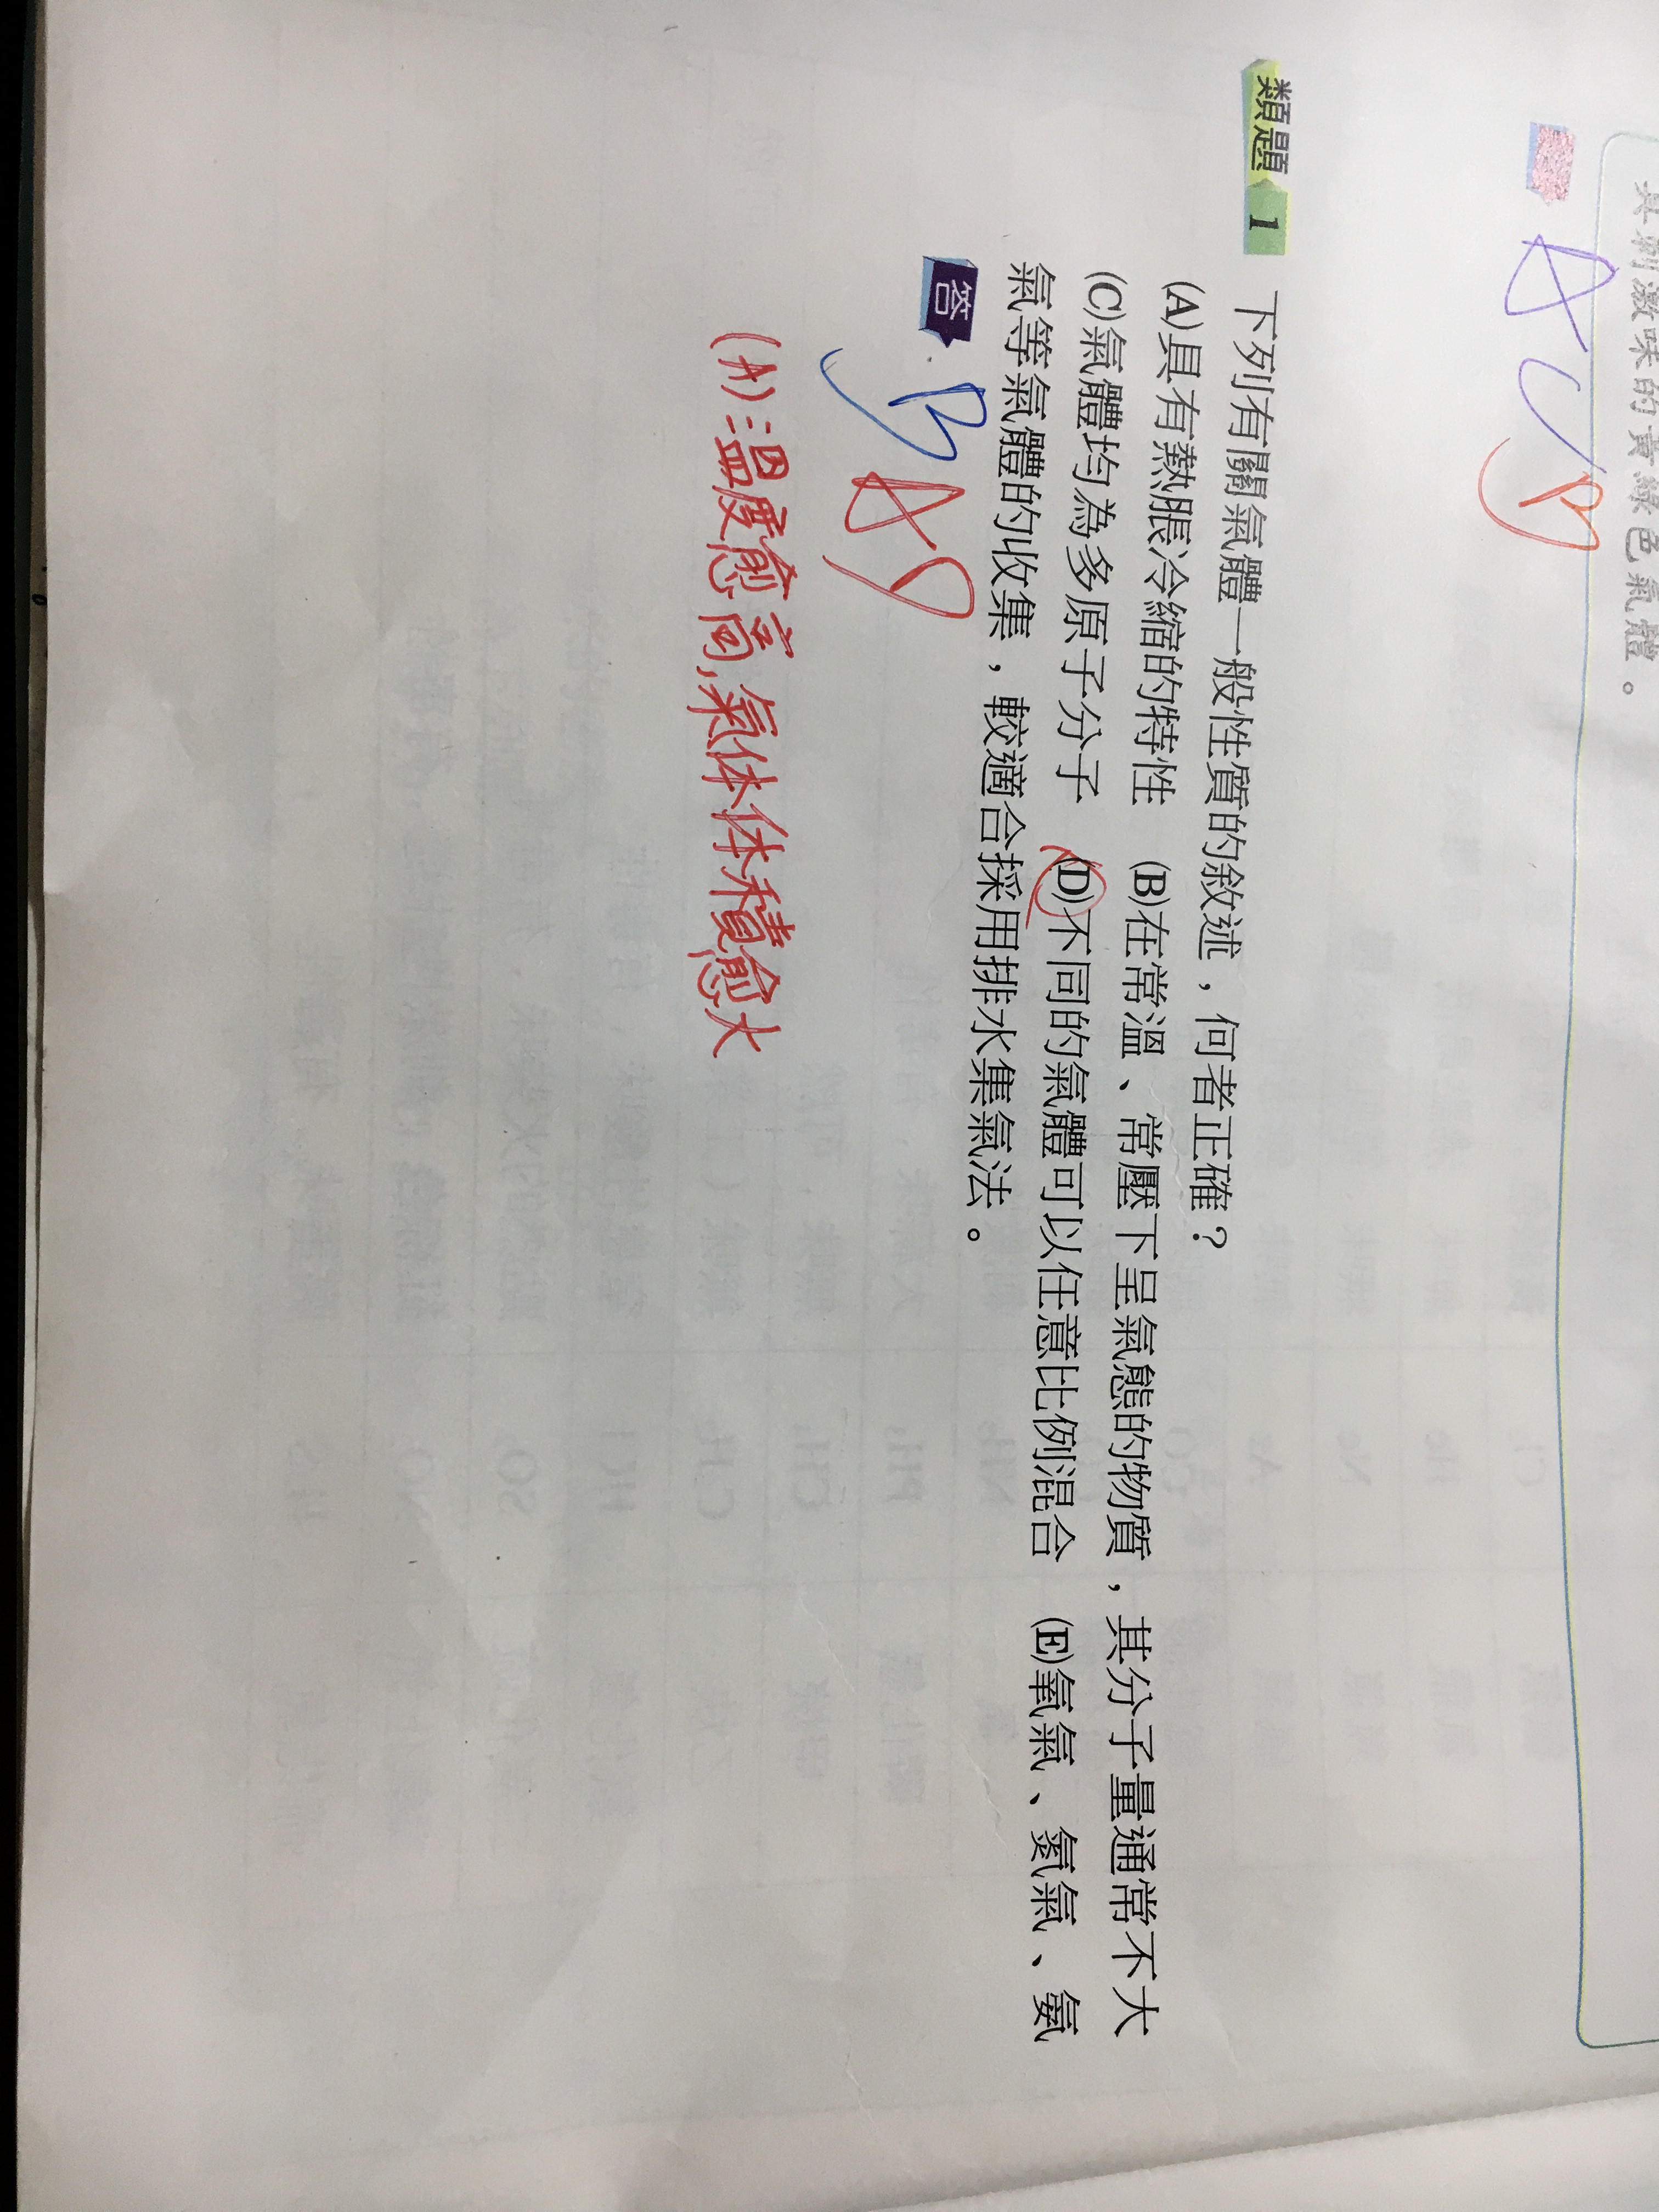 具刺激味的黃綠色氣體。
A C D
類題 1 下列有關氣體一般性質的敘述，何者正確？
(A)具有熱脹冷縮的特性 (B)在常溫、常壓下呈氣態的物質，其分子量通常不大
(C)氣體均為多原子分子 (D)不同的氣體可以任意比例混合 (E)氧氣、氮氣、氨
氣等氣體的收集，較適合採用排水集氣法。
答 B A D
(A):溫度愈高,氣体体積愈大